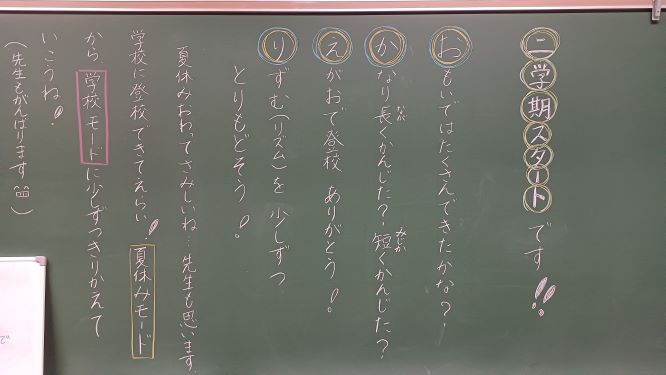 二学期スタートです!!
おもいではたくさんできたかな?
かなり長くかんじた?短くかんじた?
なが
みじか
えがおで登校 ありがとう!
りずむ(リズム)を 少しずつ
とりもどそう!
夏休みおわってさみしいね…先生も思います。
学校に登校できてえらい!夏休みモード
から、学校モードに少しずつきりかえて
いこうね!
(先生もがんばります)